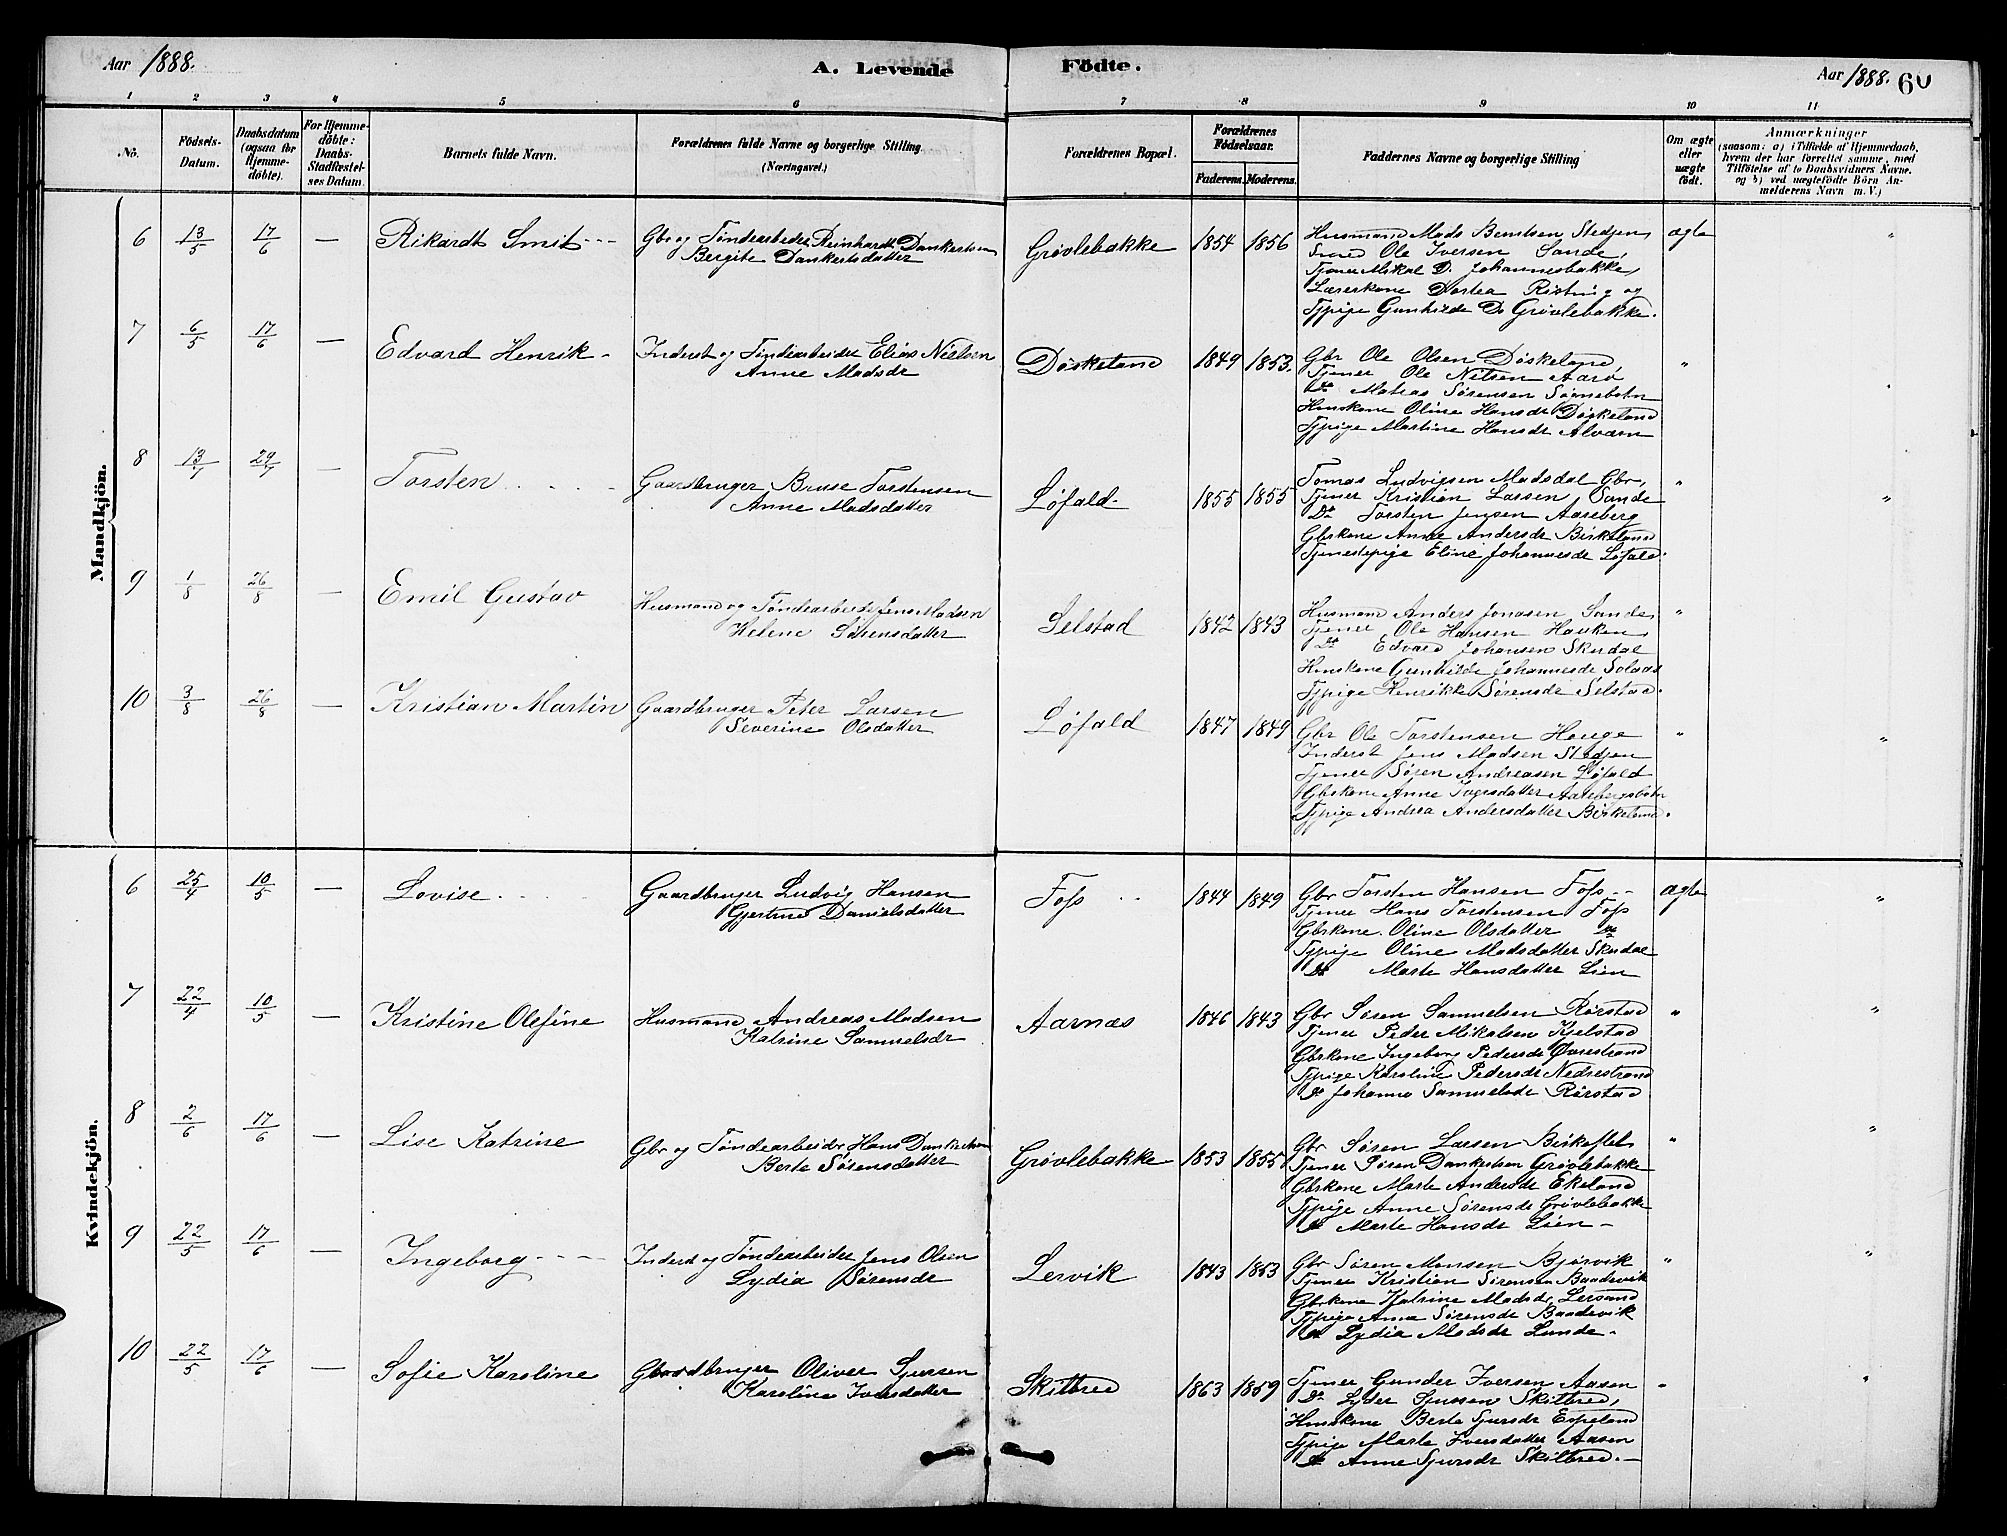 Aar 1888.
A. Levende Födte.
Aar 1888. 60
1 2 3 4 5 6 7 8 9 10 11
No.
Födsels-Datum.
Daabsdatum (ogsaa for Hjemme-döbte).
For Hjemme-döbte: Daabs-Stadfæstel-ses Datum.
Barnets fulde Navn.
Forældrenes fulde Navne og borgerlige Stilling (Næringsvei.)
Forældrenes Bopæl.
Forældrenes Födselsaar.
Faderens. Moderens.
Faddernes Navne og borgerlige Stilling
Om ægte eller uægte födt.
Anmærkninger
(saasom: a) i Tilfælde af Hjemmedaab, hvem der har forrettet samme, med Tilföielse af to Daabsvidners Navne. og b) ved uægtefödte Börn An-melderens Navn m. V.)
Mandkjön.
6 13/5 17/6 — Rikardt Smit
Gbr og Tøndearbeider Reinhardt Dankertsen
Bergite Dankertsdatter
Grøvlebakke 1854 1856
Husmand Mads Bentsen Stedjen,
Smed Ole Iversen Sande,
Tjener Mikal D. Johannesbakke,
Lærerkone Dortea Ristning og
Tjpige Gunhilde Do Grøvlebakke.
ægte "
7 6/5 17/6 — Edvard Henrik -
Inderst og Tøndearbeider Elias Nielsen
Anne Madsdr
Døskeland 1849 1853.
Gbr Ole Olsen Døskeland,
Tjener Ole Nilsen Aarø,
Do Matias Sørensen Sørnebotn
Huskone Oline Hansdr Døskeland
Tjpige Martine Hansdr Alværn
"
8 13/7 29/7 — Torsten
Gaardbruger Bruse Torstensen
Anne Madsdatter
Løfald 1855 1855
Tomas Ludvigsen Madsdal Gbr,
Tjener Kristian Larsen Sande
Do Torsten Jensen Aaseberg
Gbskone Anne Andersdr Birkeland
Tjenestepige Eline Johannesdr Løfald.
" "
9 1/8 26/8 — Emil Gustav
Husmand og Tøndearbeider Jens Madsen
Helene Sørensdatter
Selstad 1842 1843
Husmand Anders Jonasen Sande,
Tjener Ole Hansen Hauken,
Do Edvard Johansen Skudal
Huskone Gunhilde Johannesdr Solaas
Tjpige Henrikke Sørensdr Selstad.
"
10 3/8 26/8 — Kristian Martin
Gaardbruger Peter Larsen
Severine Olsdatter
Løfald 1847 1849
Gbr Ole Torstensen Hauge
Inderst Jens Madsen Stedjen
Tjener Søren Andreasen Løfald
Gbskone Anne Ivarsdatter Aasebergsbotn
Tjpige Andrea Andersdatter Birkeland.
" "
Kvindekjön.
6 25/4 10/5 — Lovise
Gaardbruger Ludvig Hansen
Gjertrud Danielsdatter
Foss 1844 1849
Gbr Torsten Hansen Foss
Tjener Hans Torstensen Foss
Gbskone Oline Olsdatter Do
Tjpige Oline Madsdatter Skudal
Do Marte Hansdatter Lien
ægte "
7 22/4 10/5 — Kristine Olefine
Husmand Andreas Madsen
Katrine Samuelsdr
Aarnæs 1846 1843
Gbr Søren Samuelsen Rørstad
Tjener Peder Mikalsen Kjelstad
Gbskone Ingeborg Pedersdr Øvrestrand
Tjpige Karoline Pedersdr Nedrestrand
Do Johanna Samuelsdr Rørstad
" "
8 2/6 17/6 — Lise Katrine
Gbr og Tøndearbeider Hans Dankertsen
Berte Sørensdatter
Grøvlebakke 1853 1855
Gbr Søren Larsen Birkeflet
Tjener Søren Dankertsen Grøvlebakke
Gbskone Marte Andersdr Ekeland
Tjpige Anne Sørensdr Grøvlebakke
Do Marte Hansdr Lien -
" "
9 22/5 17/6 — Ingeborg
Inderst og Tøndearbeider Jens Olsen
Lydia Sørensdr
Lervik 1843 1853
Gbr Søren Monsen Bjørvik
Tjener Kristian Sørensen Baadsvik
Gbskone Katrine Madsdr Lersund
Tjpige Anna Sørensdr Baadsvik
Do Lydia Madsdr Lunde -
" "
10 22/5 17/6 — Sofie Karoline
Gaardbruger Oliver Sjursen
Karoline Iversdatter
Skilbred 1863 1859
Tjener Gunder Iversen Aasen
Do Lyder Sjursen Skilbred,
Huskone Berte Sjursdr Espeland
Tjpige Marte Iversdatter Aasen
Do Anne Sjursdr Skilbred. -
" "